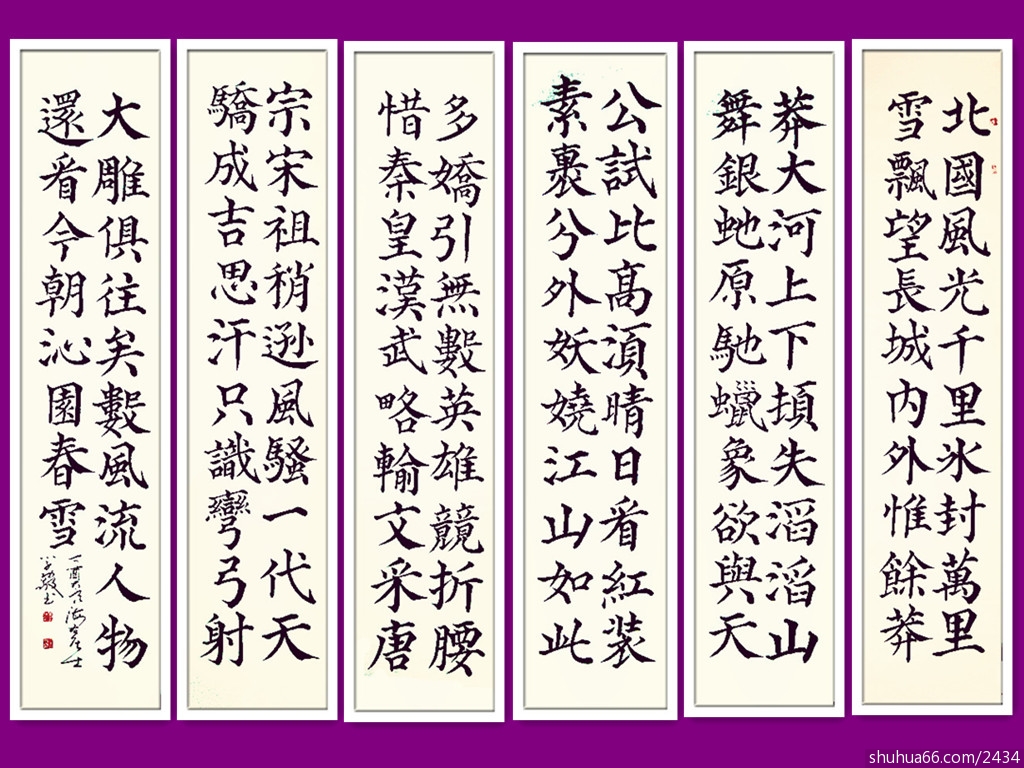 北國風光千里氷封萬里
雪飄望長城内外惟餘莽
莽大河上下頓失滔滔山
舞銀虵原馳蠟象欲與天
公試比髙湏晴日看紅装
素裹分外妖嬈江山如此
多嬌引無數英雄競折腰
惜秦皇漢武略輸文采唐
宗宋祖稍遜風騷一代天
驕成吉思汗只識彎弓射
大雕俱往矣數風流人物
還看今朝沁園春雪
丁酉
shuhua66.com/2434